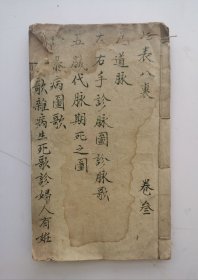 表八裏
卷叁
道脉
左右手診脉圖診脉歌
五臟代脉期死之圖
病圖歌
歌雜病生死歌診婦人有妊